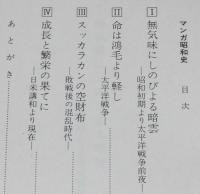 マンガ昭和史
目次
Ⅰ無気味にしのびよる暗雲
―昭和初期より太平洋戦争前夜―
Ⅱ命は鴻毛より軽し
―太平洋戦争―
Ⅲスッカラカンの空財布
―敗戦後の混乱時代―
Ⅳ成長と繁栄の果てに
―日米講和より現在―
あとがき